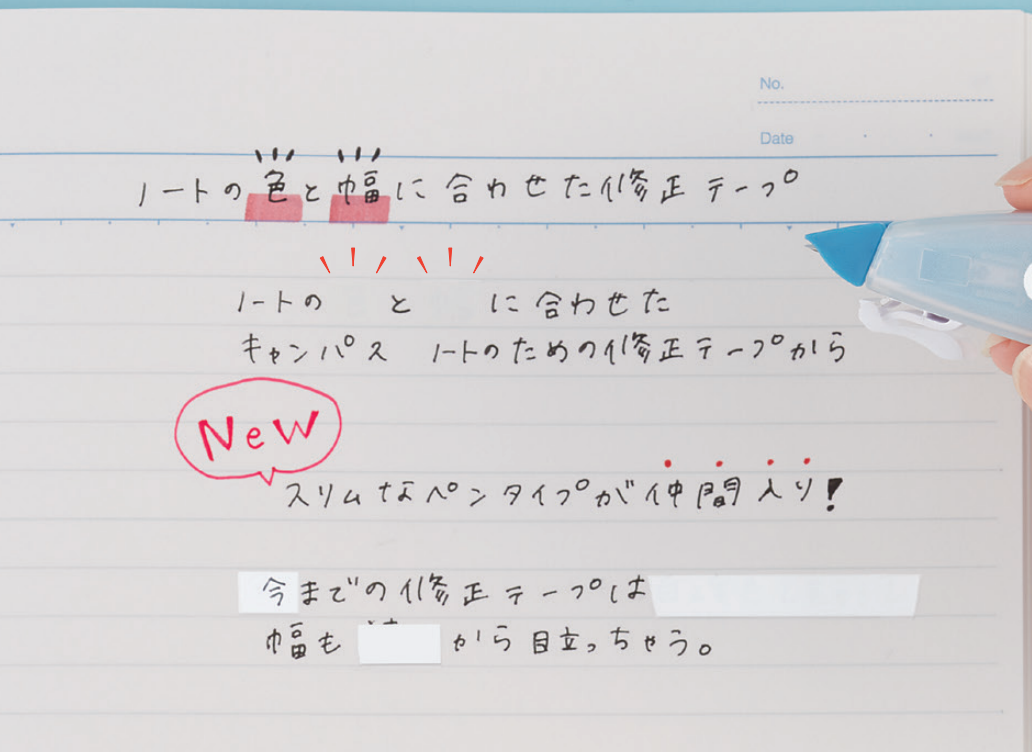 No.
Date
ノートの色と幅に合わせた修正テープ
ノートの と に合わせた
キャンパス ノートのための修正テープから
New
スリムなペンタイプが仲間入り!
今までの修正テープは
幅も から目立っちゃう。